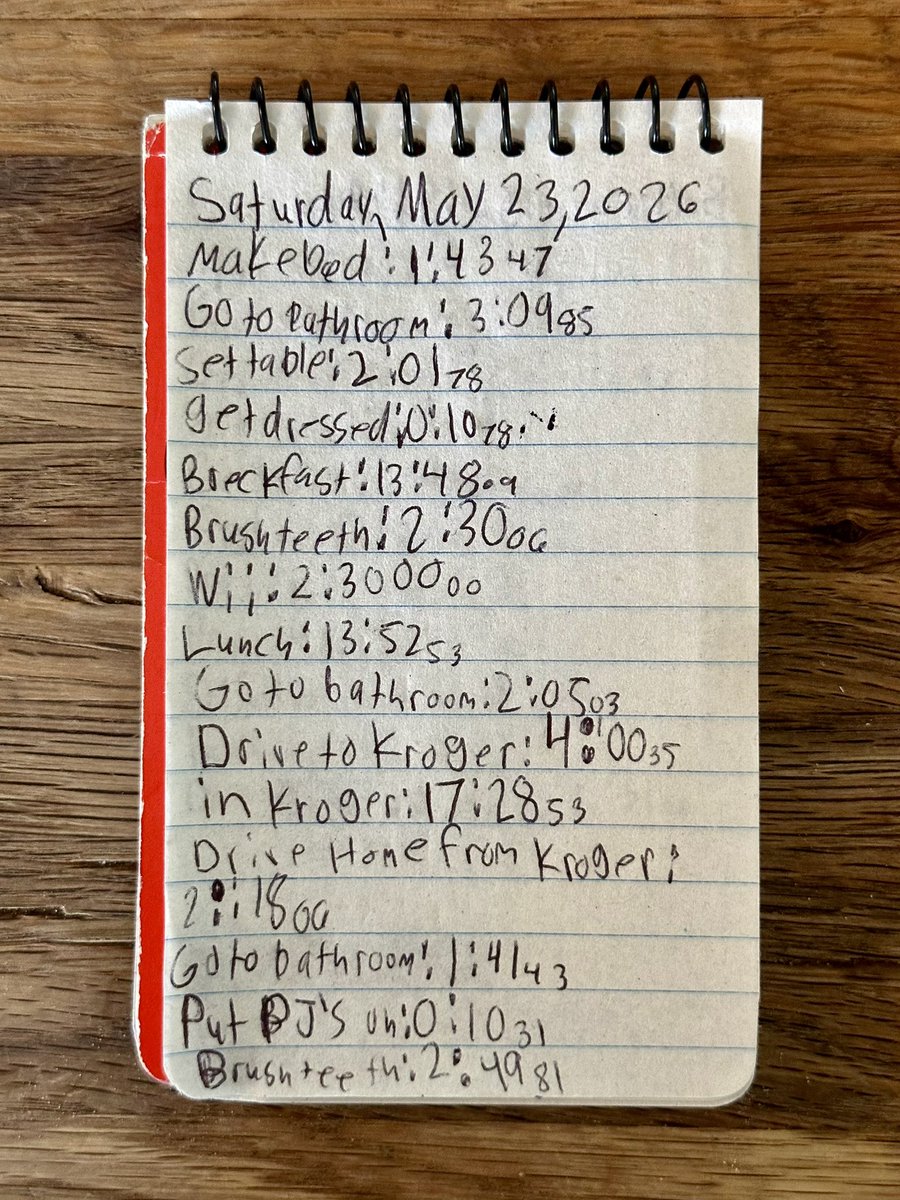 Saturday, May 23, 2026
Make bed: 1:43 47
Go to bathroom: 3:09 85
Set table: 2:01 78
get dressed: 0:10 78
Breckfast: 13:48 09
Brush teeth: 2:30 06
Wii: 2:30 00 00
Lunch: 13:52 53
Go to bathroom: 2:05 03
Drive to Kroger: 4:00 35
in Kroger: 17:28 53
Drive Home from Kroger:
2:18 06
Go to bathroom: 1:41 43
Put PJ's on: 0:10 31
Brush teeth: 2:49 81